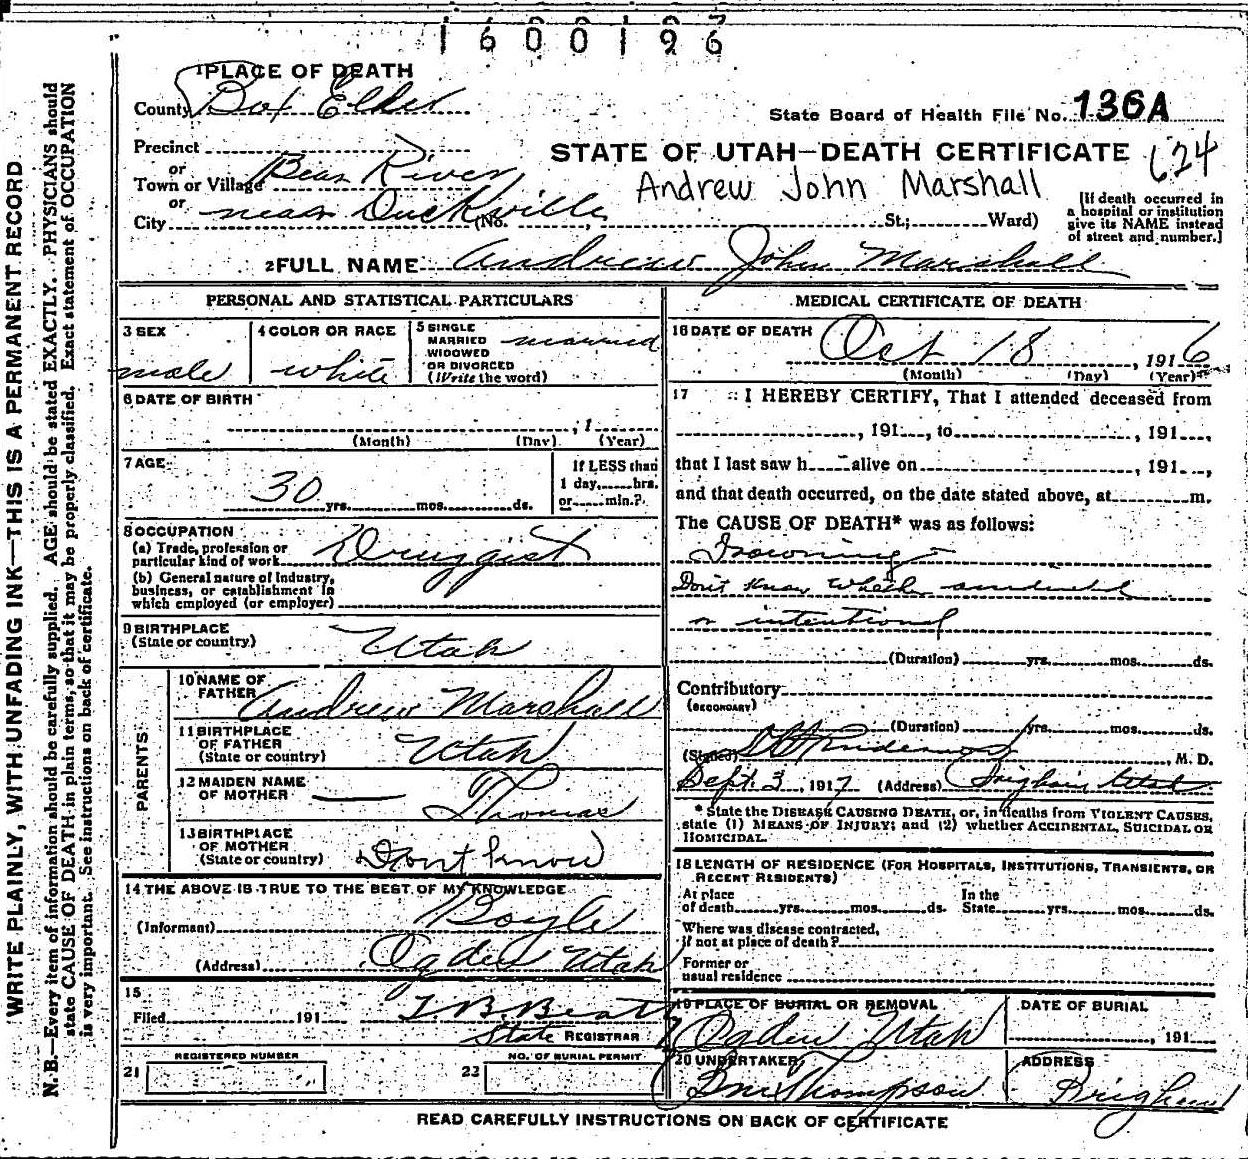 1600196
1 PLACE OF DEATH
County Box Elder
State Board of Health File No. 136A
Precinct
or
Town or Village Bear River
or
City near Duckville (No. St.; Ward)
STATE OF UTAH—DEATH CERTIFICATE 624
Andrew John Marshall
[If death occurred in
a hospital or institution
give its NAME instead
of street and number.]
2 FULL NAME Andrew John Marshall
PERSONAL AND STATISTICAL PARTICULARS
3 SEX
male
4 COLOR OR RACE
white
5 SINGLE
MARRIED
WIDOWED
OR DIVORCED
(Write the word)
married
6 DATE OF BIRTH
, 1
(Month) (Day) (Year)
7 AGE
30 yrs. mos. ds.
If LESS than
1 day, hrs.
or min.?
8 OCCUPATION
(a) Trade, profession or
particular kind of work Druggist
(b) General nature of Industry,
business, or establishment in
which employed (or employer)
9 BIRTHPLACE
(State or country) Utah
PARENTS
10 NAME OF
FATHER Andrew Marshall
11 BIRTHPLACE
OF FATHER
(State or country) Utah
12 MAIDEN NAME
OF MOTHER — Thomas
13 BIRTHPLACE
OF MOTHER
(State or country) Don't know
14 THE ABOVE IS TRUE TO THE BEST OF MY KNOWLEDGE
(Informant) Boyle
(Address) Ogden Utah
15
Filed 191 T. B. Beatty
State REGISTRAR
21 REGISTERED NUMBER
22 NO. OF BURIAL PERMIT
MEDICAL CERTIFICATE OF DEATH
16 DATE OF DEATH
Oct 18, 1916
(Month) (Day) (Year)
17 I HEREBY CERTIFY, That I attended deceased from
, 191 , to , 191 ,
that I last saw h alive on , 191 ,
and that death occurred, on the date stated above, at m.
The CAUSE OF DEATH* was as follows:
Drowning –
Don't know whether accidental
or intentional
(Duration) yrs. mos. ds.
Contributory
(SECONDARY)
(Duration) yrs. mos. ds.
(Signed) , M. D.
Sept. 3, 1917 (Address) Brigham Utah
* State the DISEASE CAUSING DEATH, or, in deaths from VIOLENT CAUSES,
state (1) MEANS OF INJURY; and (2) whether ACCIDENTAL, SUICIDAL OR
HOMICIDAL.
18 LENGTH OF RESIDENCE (FOR HOSPITALS, INSTITUTIONS, TRANSIENTS, OR
RECENT RESIDENTS)
At place
of death yrs. mos. ds.
In the
State yrs. mos. ds.
Where was disease contracted,
if not at place of death?
Former or
usual residence
19 PLACE OF BURIAL OR REMOVAL
Ogden Utah
DATE OF BURIAL
, 191
20 UNDERTAKER
Thompson
ADDRESS
Brigham
READ CAREFULLY INSTRUCTIONS ON BACK OF CERTIFICATE
WRITE PLAINLY, WITH UNFADING INK—THIS IS A PERMANENT RECORD
N. B.—Every item of information should be carefully supplied. AGE should be stated EXACTLY. PHYSICIANS should
state CAUSE OF DEATH in plain terms, so that it may be properly classified. Exact statement of OCCUPATION
is very important. See instructions on back of certificate.